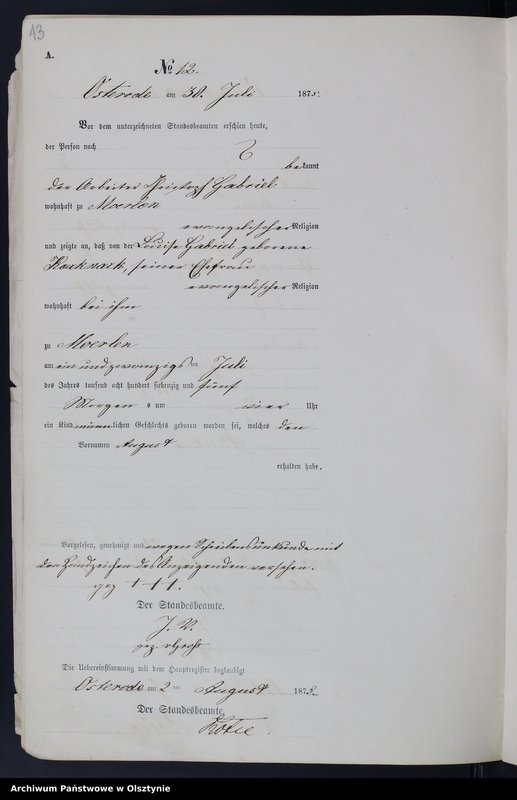 13
A.
№ 12.
Osterode am 30. Juli 1875.
Vor dem unterzeichneten Standesbeamten erschien heute,
der Person nach
bekannt
der Arbeiter Christoph Gabriel
wohnhaft zu Moerlen
evangelischer Religion
und zeigte an, daß von der Louise Gabriel geborene
seiner Ehefrau
evangelischer Religion
wohnhaft bei ihm
zu Moerlen
am ein und zwanzigsten Juli
des Jahres tausend acht hundert siebenzig und fünf
Morgens um vier Uhr
ein Kind männlichen Geschlechts geboren worden sei, welches den
Vornamen August
erhalten habe.
Vorgelesen, genehmigt und wegen Schreibensunkunde mit
den Handzeichen des Anzeigenden versehen.
gez +++.
Der Standesbeamte.
J. V.
gez.
Die Uebereinstimmung mit dem Hauptregister beglaubigt
Osterode am 2 ten August 187
Der Standesbeamte.
Archiwum Państwowe w Olsztynie